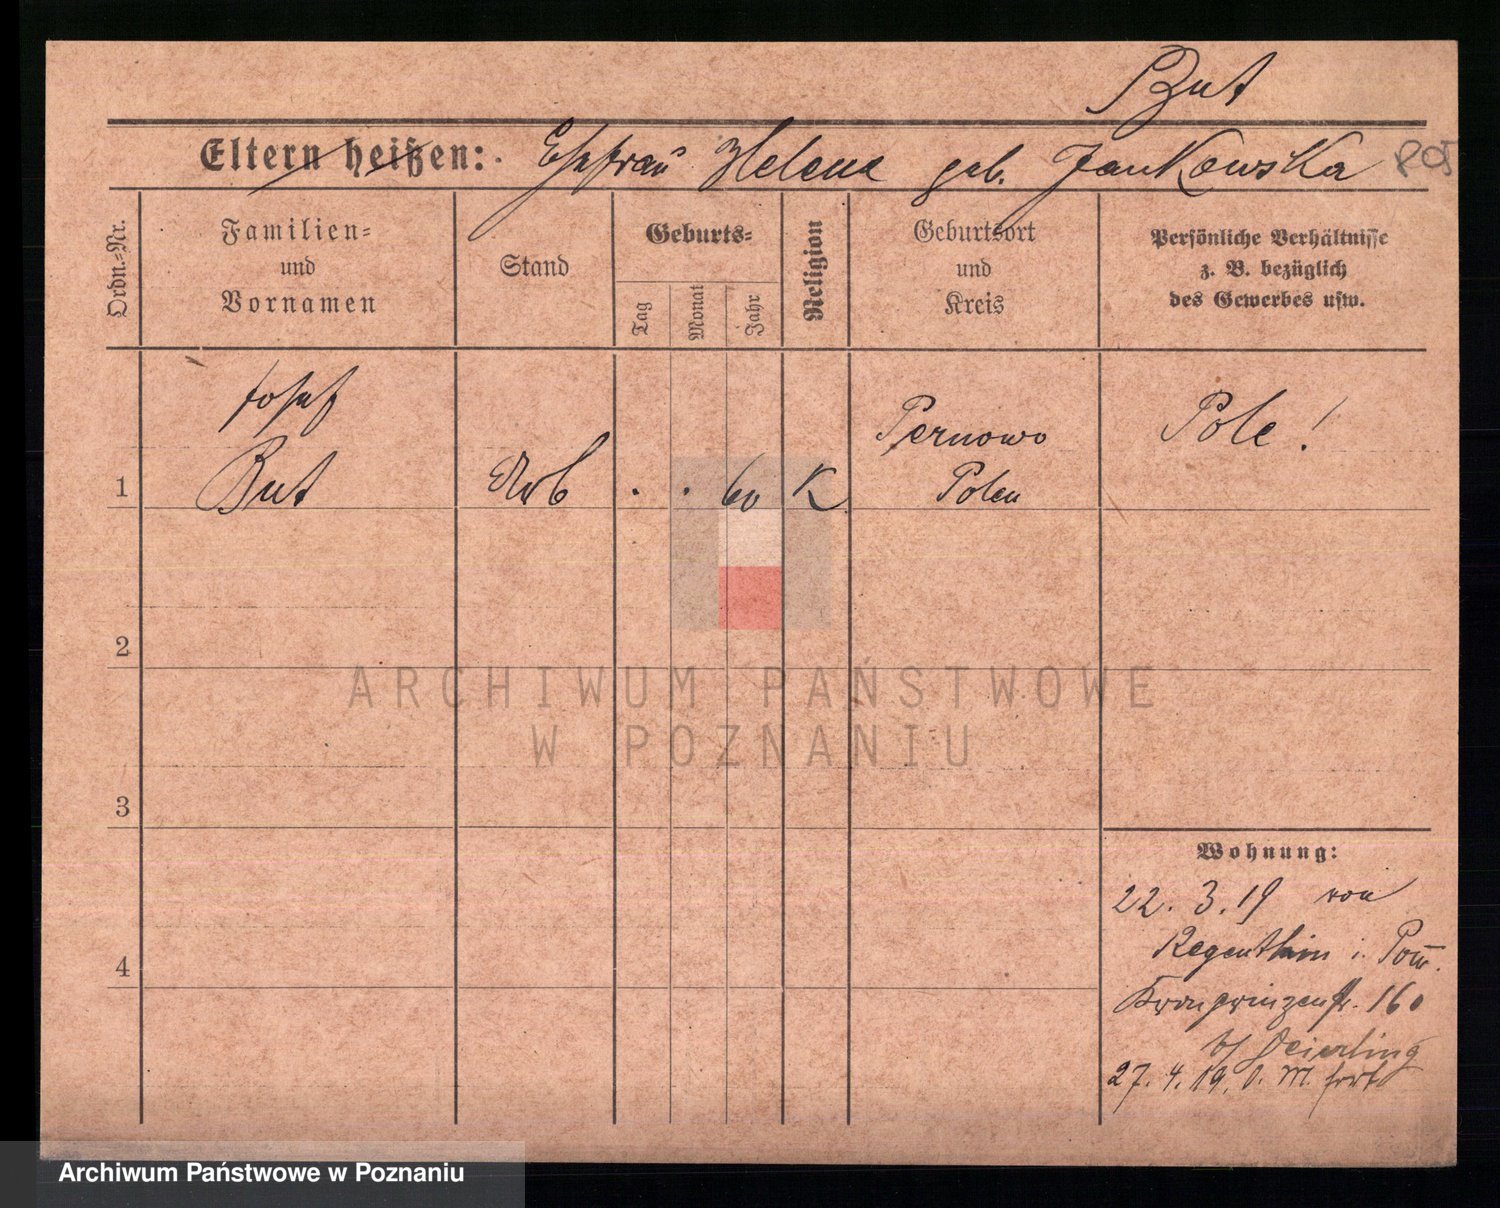 But
Eltern heißen: Ehefrau Helena geb. Jankowska
Ordn.-Nr.
Familien-
und
Vornamen
Stand
Geburts-
Tag
Monat
Jahr
Religion
Geburtsort
und
Kreis
Persönliche Verhältnisse
z. B. bezüglich
des Gewerbes usw.
Josef
But
1
Arb
. . 60
K
Pernowo
Polen
Pole!
2
3
4
Wohnung:
22. 3. 19 von
Regenthin i. Pom.
Kronprinzenstr. 160
b/ Deierling
27. 4. 19. o. M. fort
ARCHIWUM PAŃSTWOWE
W POZNANIU
Archiwum Państwowe w Poznaniu